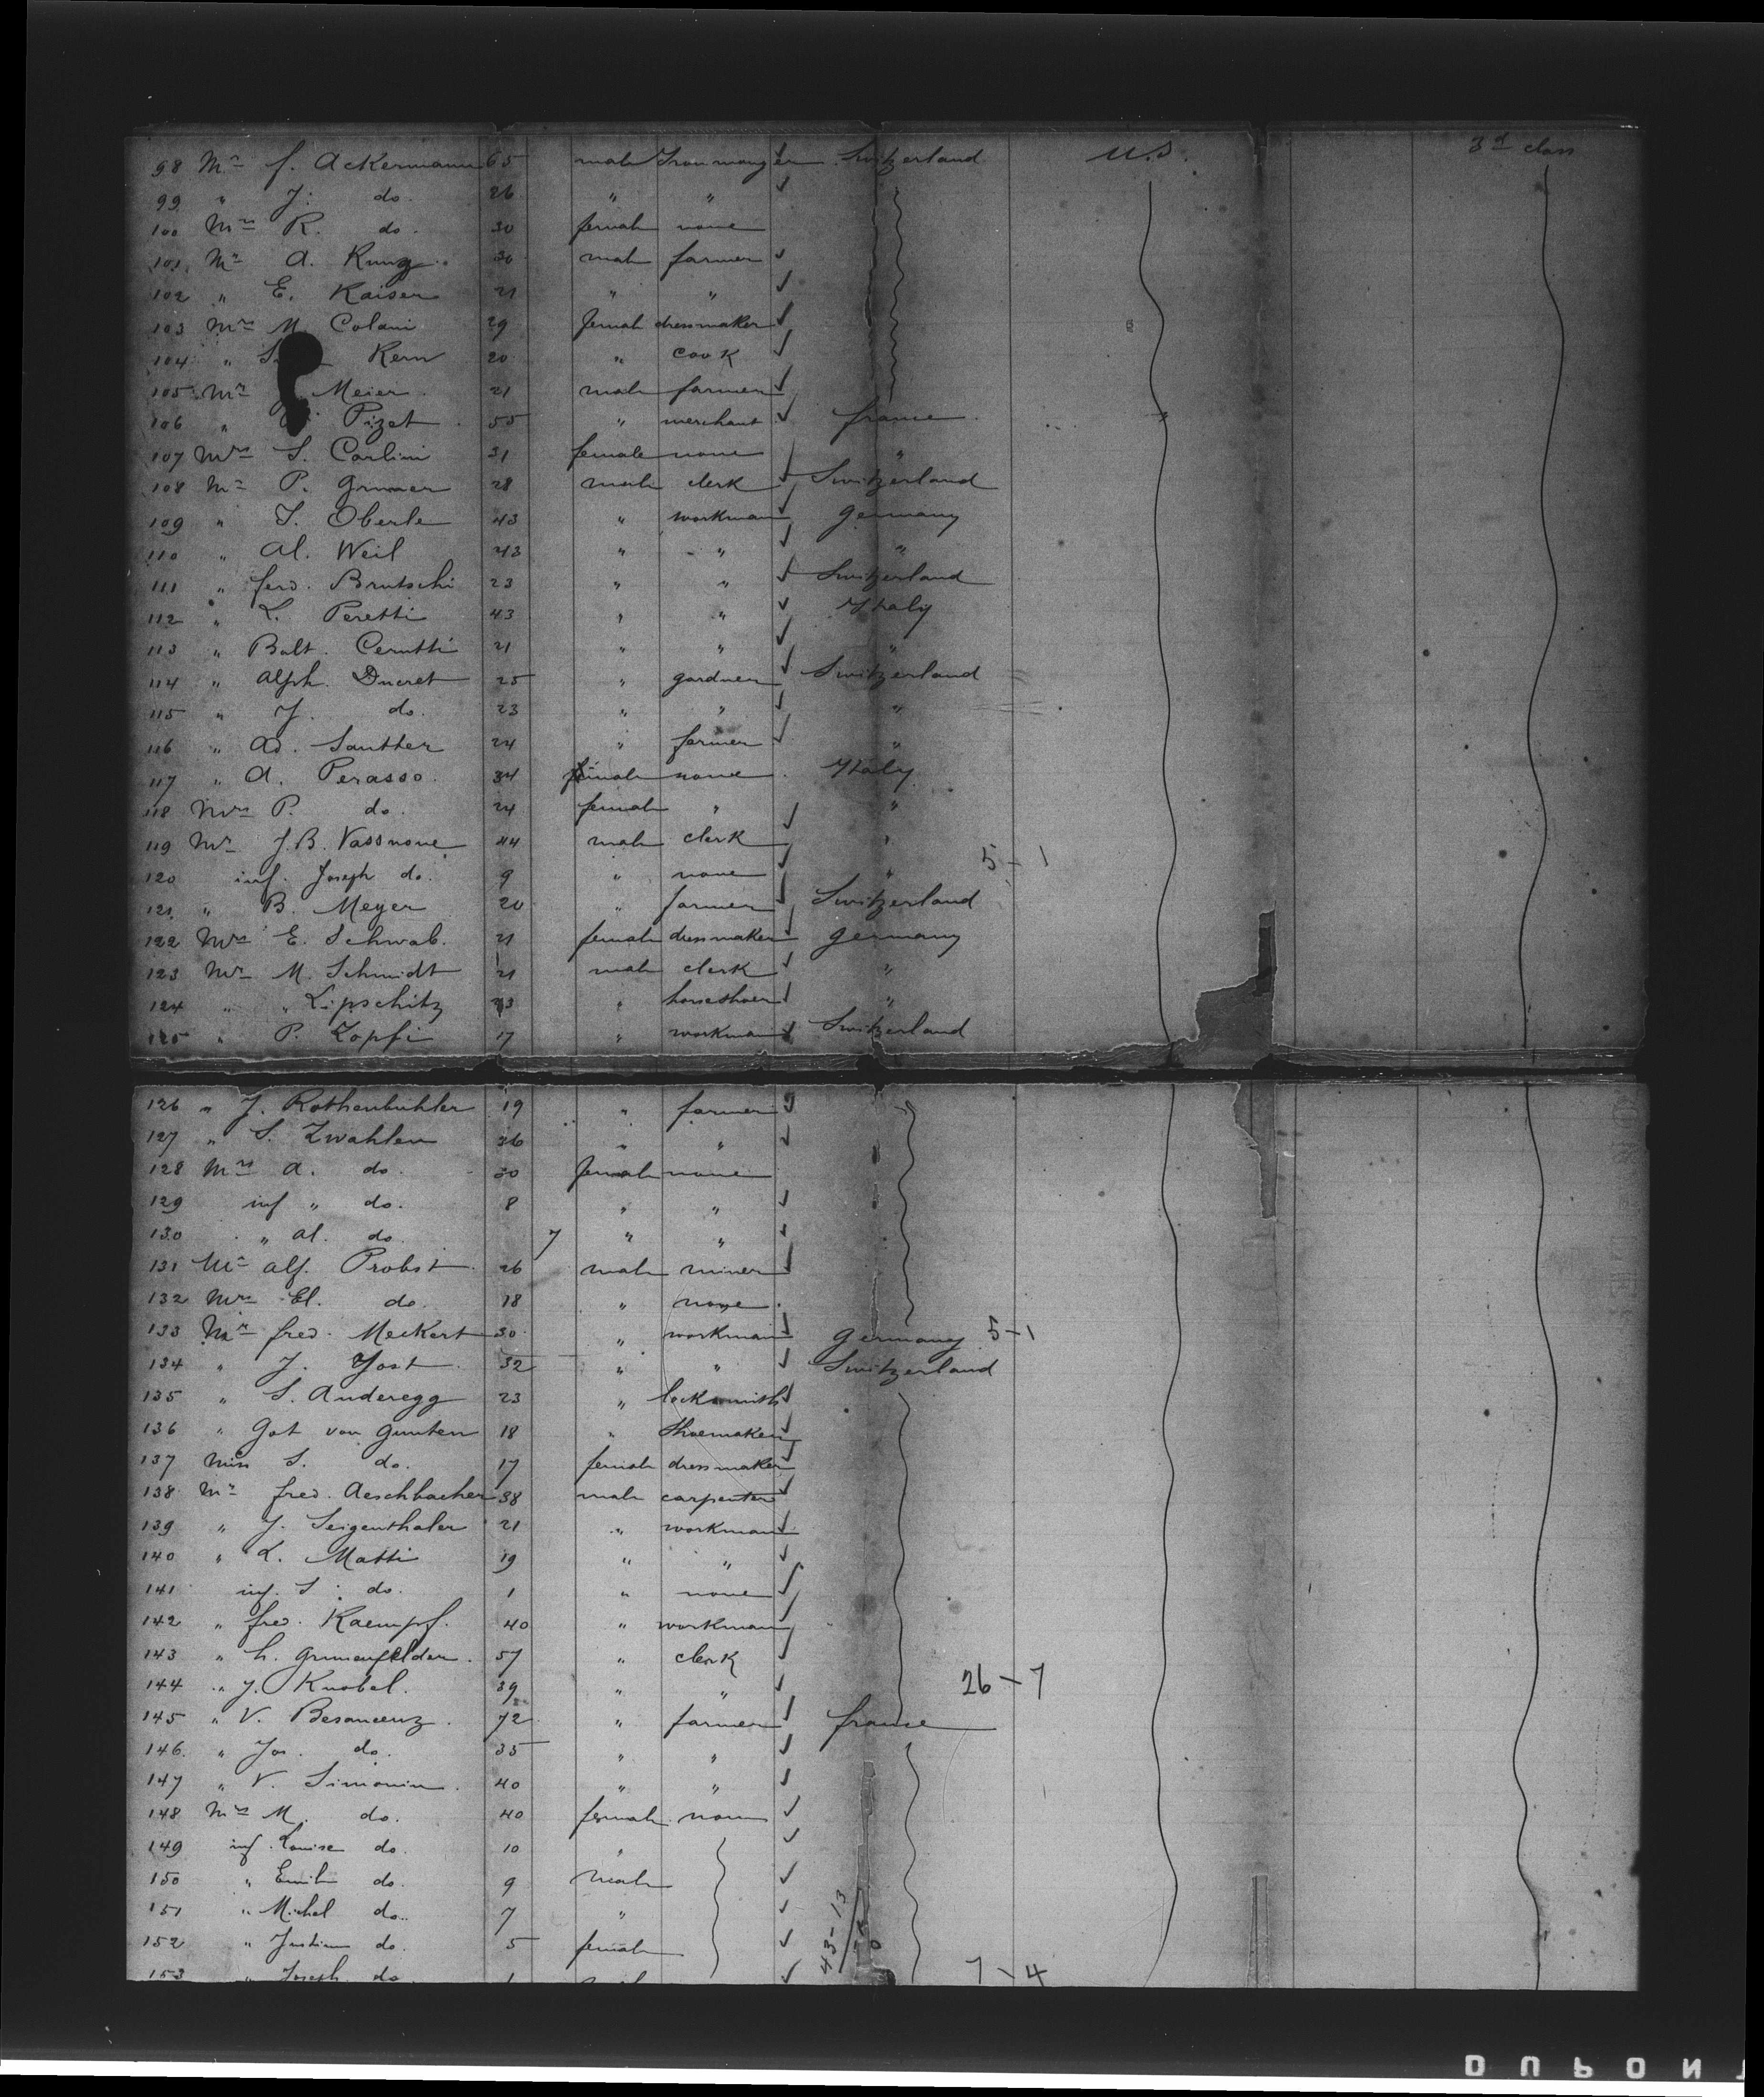 98 Mr f. Ackermann 65 male Ironmonger Switzerland U.S. 3d class
99 " J. do. 26 " "
100 Mrs R. do. 30 female none
101 Mr A. Kung 30 male farmer
102 " E. Kaiser 21 " "
103 Mrs M. Colani 29 female dressmaker
104 " Kern 20 " cook
105 Mr Meier 21 male farmer
106 " Pizet 55 " merchant france
107 Mrs S. Carlini 31 female none "
108 Mr P. 28 male clerk Switzerland
109 " S. Oberle 43 " workman Germany
110 " Al. Weil 43 " " "
111 " ferd. Brutschi 23 " " Switzerland
112 " L. Peretti 43 " " Italy
113 " Balt. Cerutti 21 " " "
114 " Alph. Ducret 25 " gardner Switzerland
115 " J. do. 23 " " "
116 " Ad. Sauther 24 " farmer "
117 " A. Perasso 34 none Italy
118 Mrs P. do. 24 female " "
119 Mr J.B. Vassnone 44 male clerk "
120 inf. Joseph do. 9 " none " 5-1
121 " B. Meyer 20 " farmer Switzerland
122 Mrs E. Schwab. 21 female dressmaker Germany
123 Mr M. Schmidt 21 male clerk "
124 " Lipschitz " horseshoer "
125 " P. Zopfi 17 " workman Switzerland
126 " J. Rothenbuhler 19 " farmer
127 " S. Zwahlen 36 " "
128 Mrs A. do. 30 female none
129 inf " do. 8 " "
130 " Al. do 7 " "
131 Mr Alf. Probst 26 male miner
132 Mrs El. do. 18 " none
133 Mr fred. Meckert 30 " workman Germany 5-1
134 " J. Yost 32 " " Switzerland
135 " S. Anderegg 23 " locksmith
136 " Got von Gunten 18 " Shoemaker
137 Miss S. do. 17 female dressmaker
138 Mr fred. Aeschbacher 38 male carpenter
139 " J. Seigenthaler 21 " workman
140 " L. Matti 19 " "
141 inf. S. do. 1 " none
142 " fred. Kaempf. 40 " workman
143 " h. Grunenfelder 57 " clerk
144 " J. Knobel. 39 " " 26-7
145 " V. Besancenz 72 " farmer france
146 " Jos. do. 35 " "
147 " V. Simonin 40 " "
148 Mrs M. do. 40 female none
149 inf. Louise do. 10 "
150 " Emile do. 9 male
151 " Michel do. 7 "
152 " do. 5 female 43-13
153 " Joseph do 1 7-4
DUPONT